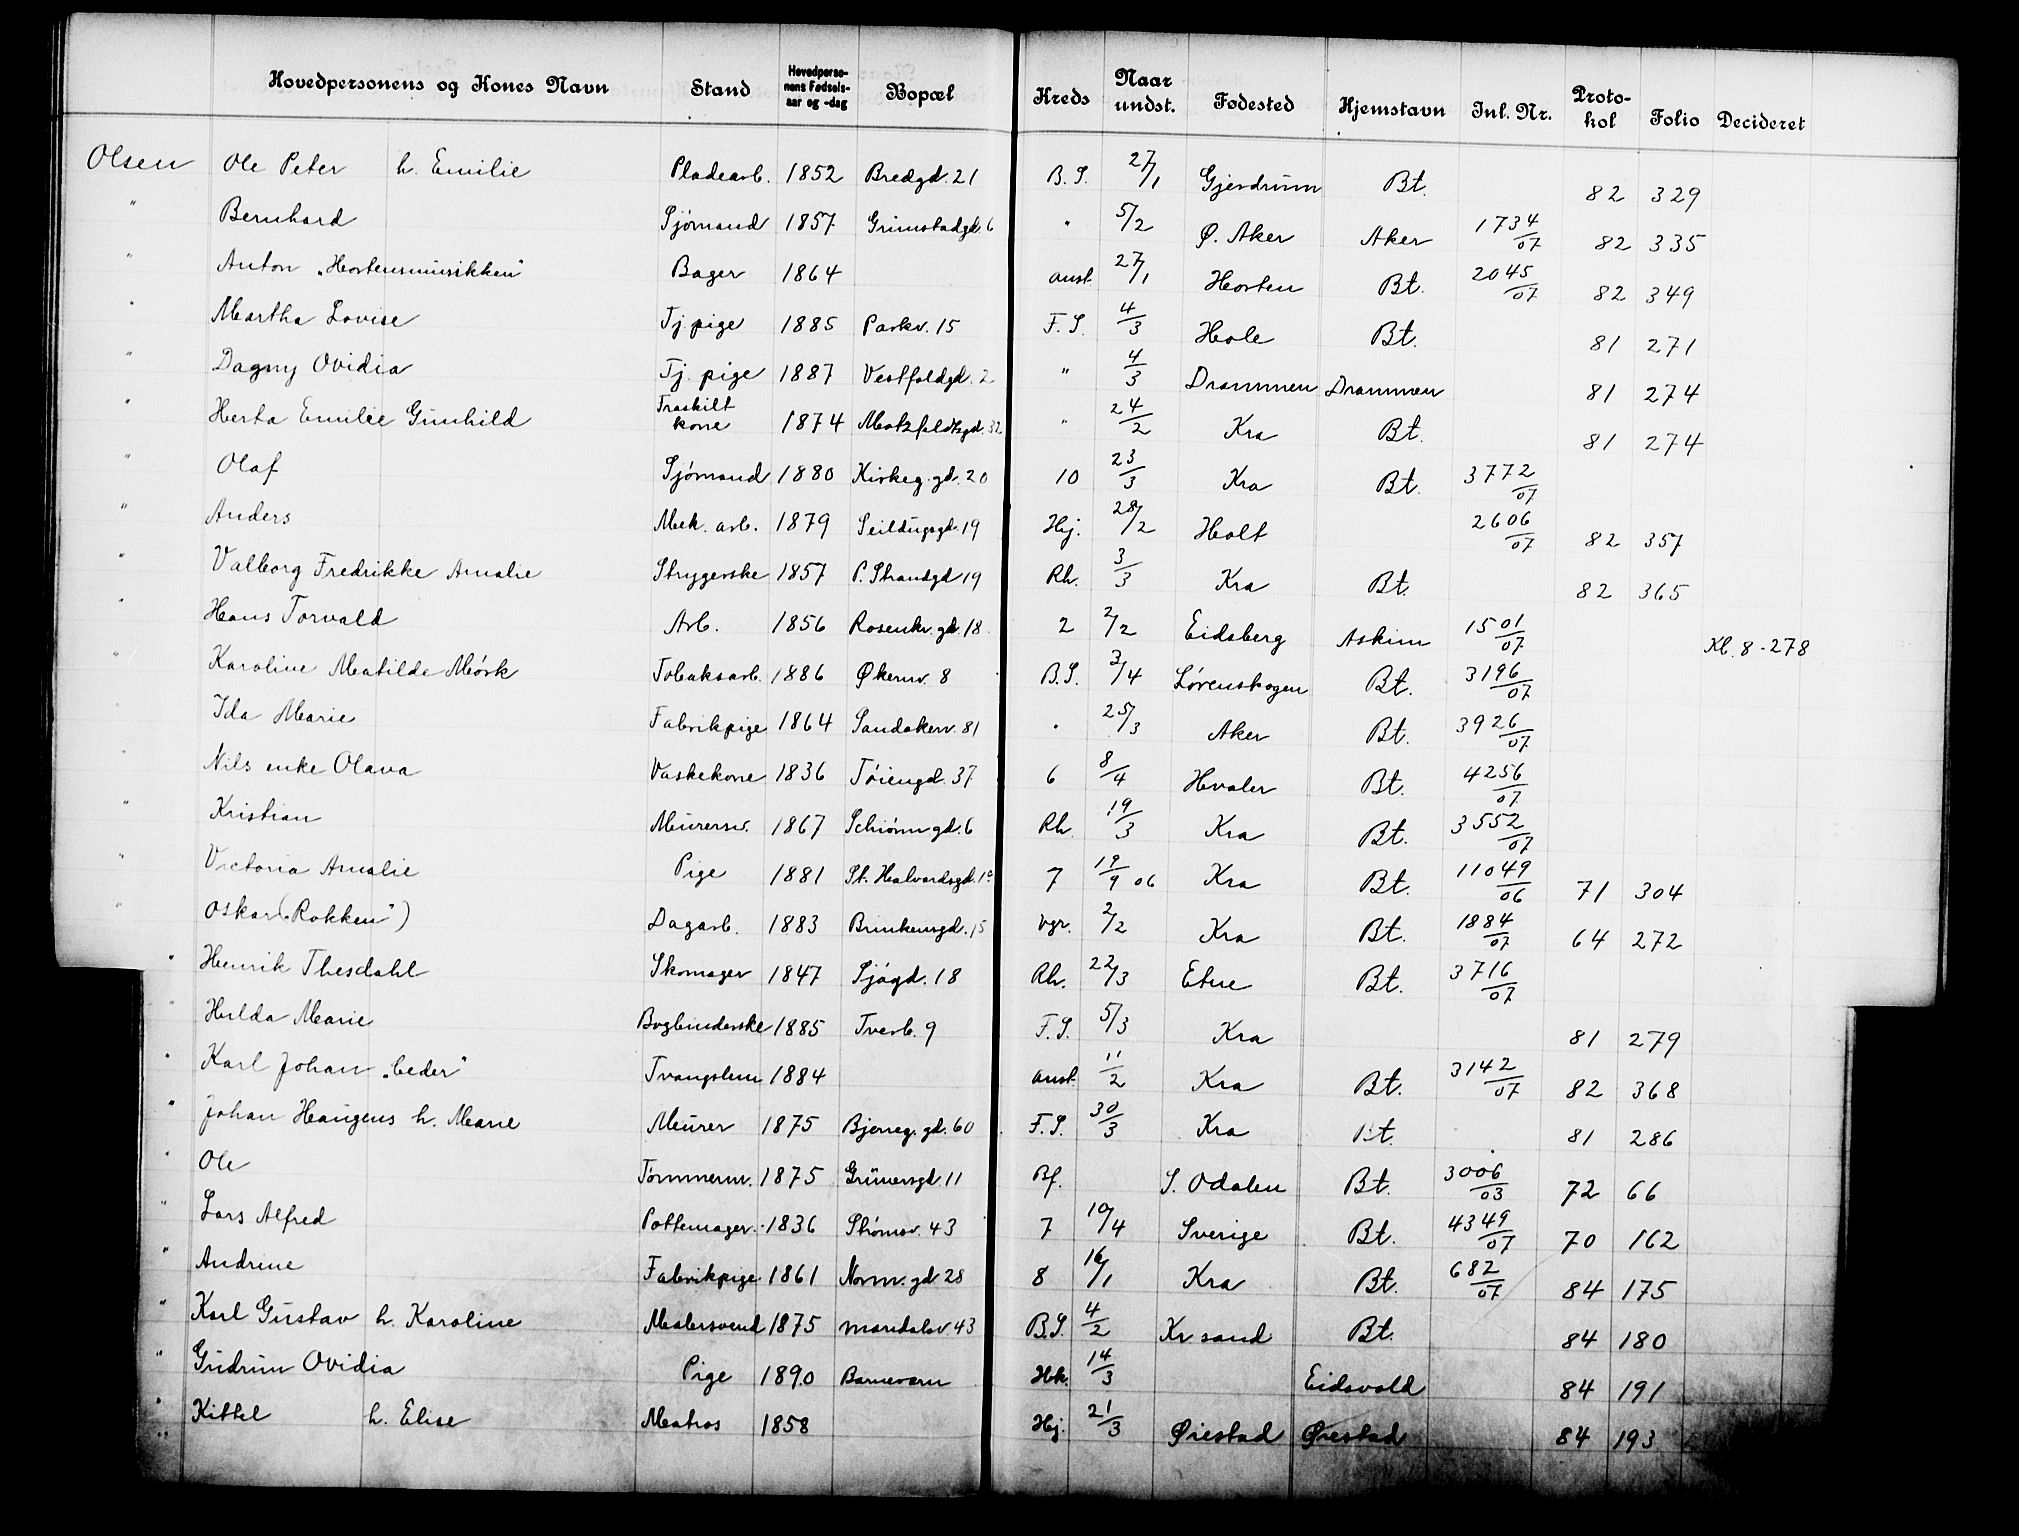 Hovedpersonens og Kones Navn Stand Hovedperso-nens Fødsels-aar og -dag Bopæl Kreds Naar undst. Fødested Hjemstavn Int. Nr. Proto-kol Folio Decideret
Olsen Ole Peter h. Emilie Pladearb. 1852 Bredgd. 21 B.S. 27/1 Gjerdrum Bt. 82 329
" Bernhard Sjømand 1857 Grimstadgd. 6 " 5/2 Ø. Aker Aker 1734/07 82 335
" Anton „Hortensmusikken" Bager 1864 anst. 27/1 Horten Bt. 2045/07 82 349
" Martha Lovise Tj. pige 1885 Parkv. 15 F.S. 4/3 Hole Bt. 81 271
" Dagny Ovidia Tj. pige 1887 Vestfoldgd. 2 " 4/3 Drammen Drammen 81 274
" Herta Emilie Gunhild Fraskilt kone 1874 Motzfeldtsgd. 32 " 24/2 Kra Bt. 81 274
" Olaf Sjømand 1880 Kirkeg.gd. 20 10 23/3 Kra Bt. 3772/07
" Anders Mek. arb. 1879 Seildugsgd. 19 Hj. 28/2 Holt 2606/07 82 357
" Valborg Fredrikke Amalie Strygerske 1857 P. Strandgd 19 Rh. 3/3 Kra Bt. 82 365
" Hans Torvald Arb. 1856 Rosenkr. gd. 18. 2 2/2 Eidsberg Askim 1501/07 Kl. 8 - 278
" Karoline Matilde Mørk Tobaksarb. 1886 Økernv. 8 B.S. 2/4 Lørenskogen Bt. 3196/07
Ida Marie Fabrikpige 1864 Sandakerv. 81 " 25/3 Aker Bt. 3926/07
" Nils enke Olava Vaskekone 1836 Tøiengd. 37 6 8/4 Hvaler Bt. 4256/07
" Kristian Murersv. 1867 Schiønn gd. 6 Rh. 19/3 Kra Bt. 3552/07
" Victoria Amalie Pige 1881 St. Halvardsgd. 1a 7 19/9 06 Kra Bt. 11049/06 71 304
" Oskar („Rokken") Dagarb. 1883 Brinkensgd. 15 Vgr. 2/2 Kra Bt. 1884/07 64 272
" Henrik Thesdahl Skomager 1847 Sjøgd. 18 Rh. 22/3 Etne Bt. 3716/07
" Hulda Marie Bogbinderske 1885 Tverb. 9 F.S. 5/3 Kra 81 279
" Karl Johan „Ceder" Tvangslem 1884 anst. 11/2 Kra Bt. 3142/07 82 368
" Johan Haugens h. Marie Murer 1875 Bjerreg. gd. 60 F.S. 30/3 Kra Bt. 81 286
" Ole Tømmerm. 1875 Grünersgd. 11 Bf. S. Odalen Bt. 3006/03 72 66
" Lars Alfred Pottemager 1836 Strømsv. 43 7 10/4 Sverige Bt. 4349/07 70 162
" Andrine Fabrikpige 1861 Norm. gd 28 8 16/1 Kra Bt. 682/07 84 175
" Karl Gustav h. Karoline Malersvend 1875 Maridalsv 43 B.S. 4/2 Kr. sand Bt. 84 180
" Gudrun Ovidia Pige 1890 Barnevarn Hk. 14/3 Eidsvold 84 191
" Kittel h. Elise Matros 1858 Hj. 21/3 Øiestad Øiestad 84 193
"